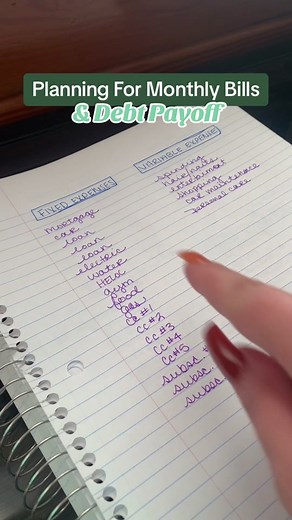 Planning For Monthly Bills
& Debt Payoff
FIXED EXPENSES
mortgage
car
loan
loan
electric
water
HELOC
gym
food
gas
CC #1
CC #2
CC #3
CC #4
CC #5
subsc.
subsc.
subsc.
VARIABLE EXPENSE
spending
hair/nails
entertainment
shopping
car maintenance
personal care